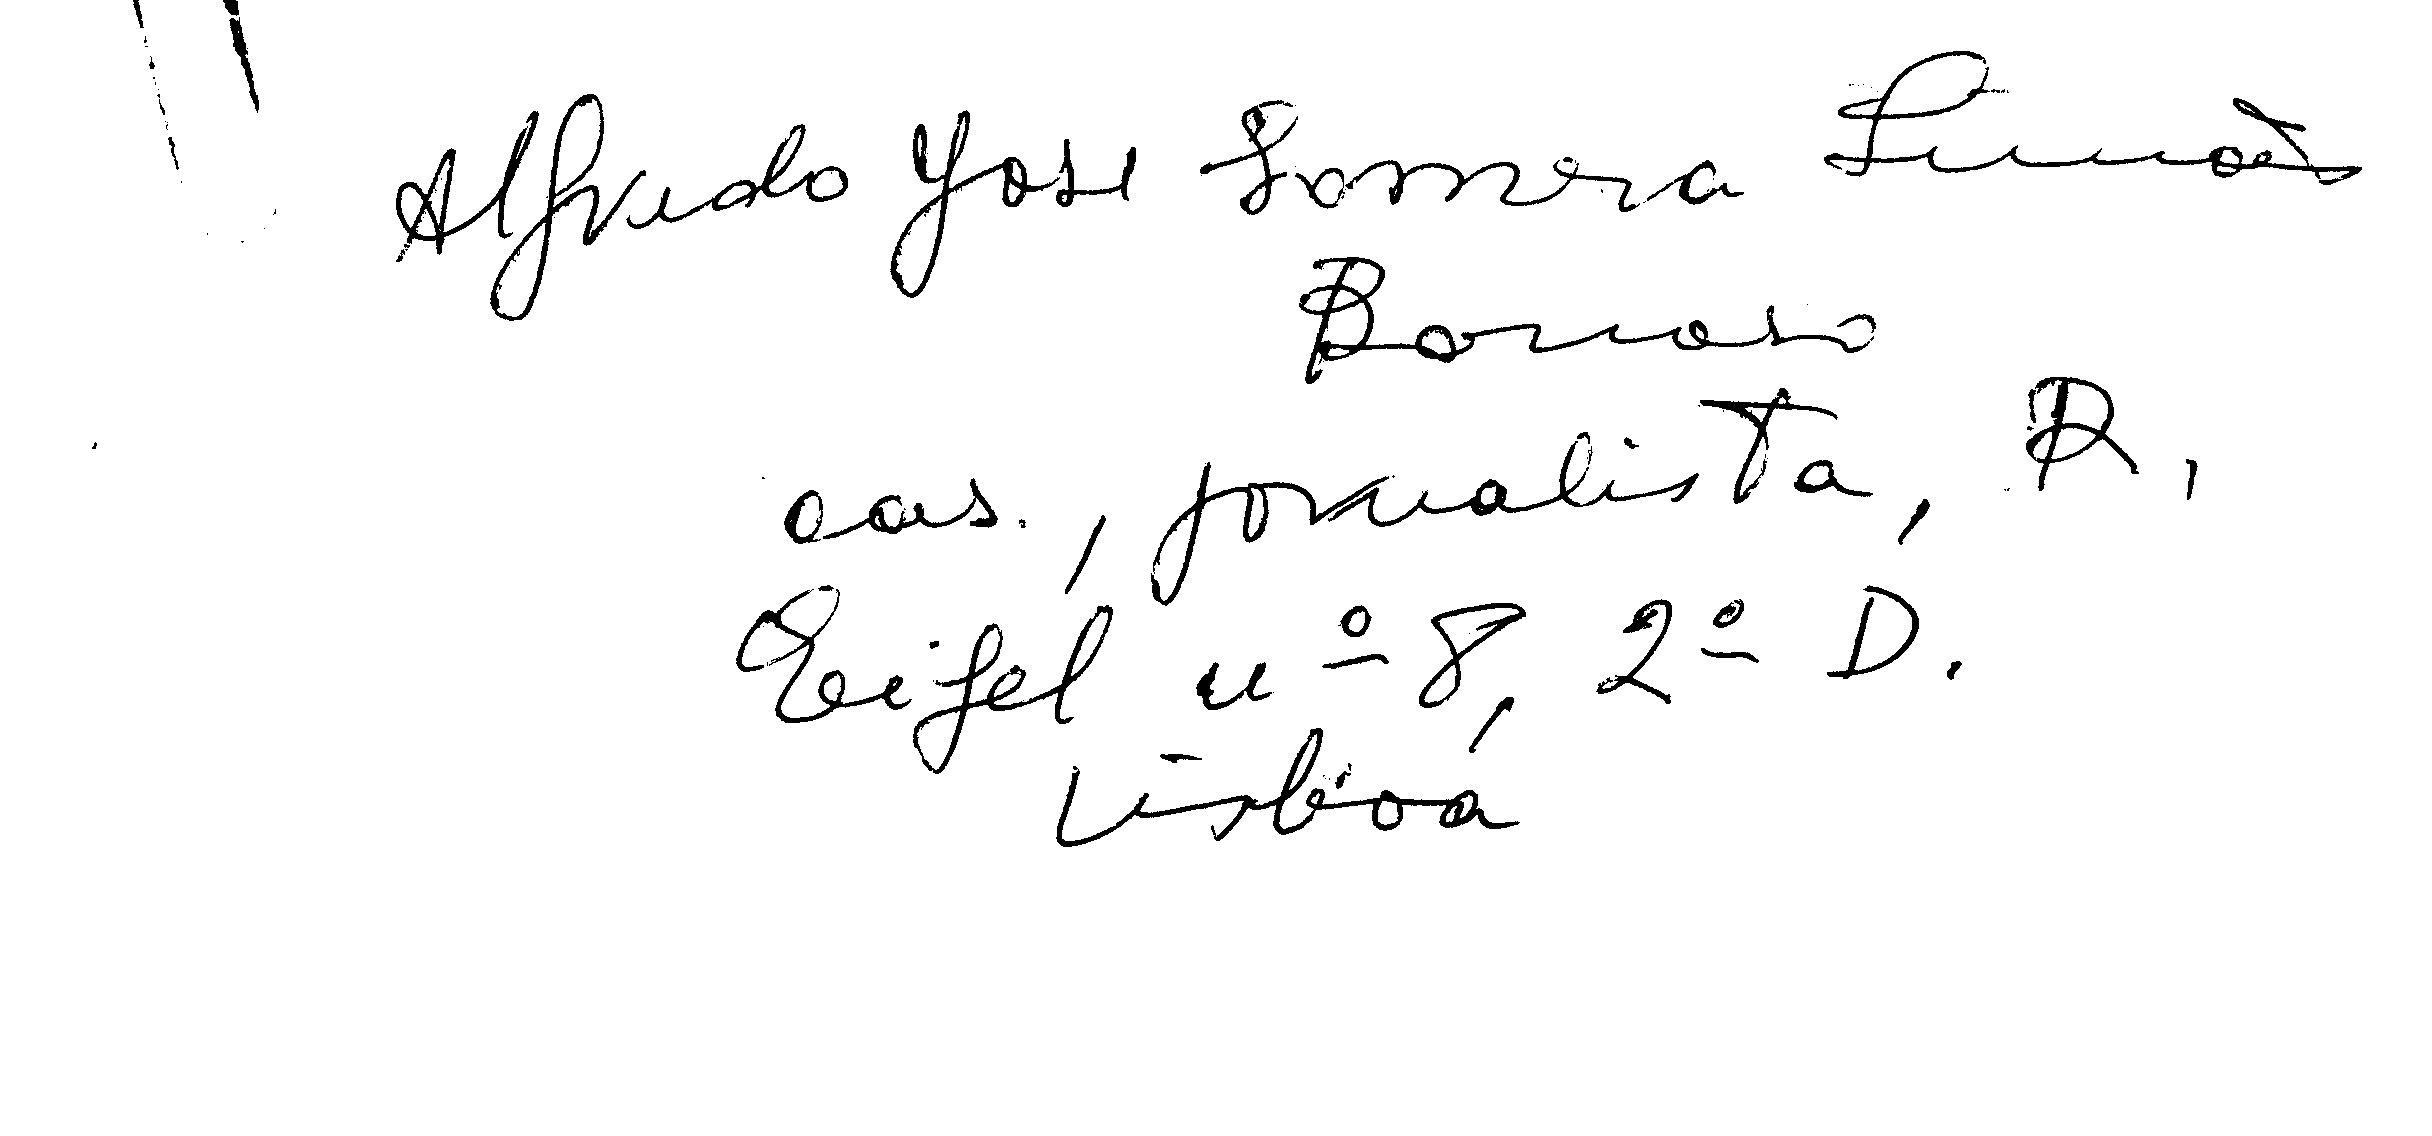 Alfredo José Somera Simões
Barroso
cas., jornalista, R.
Eifel nº 8, 2º D.
Lisboa